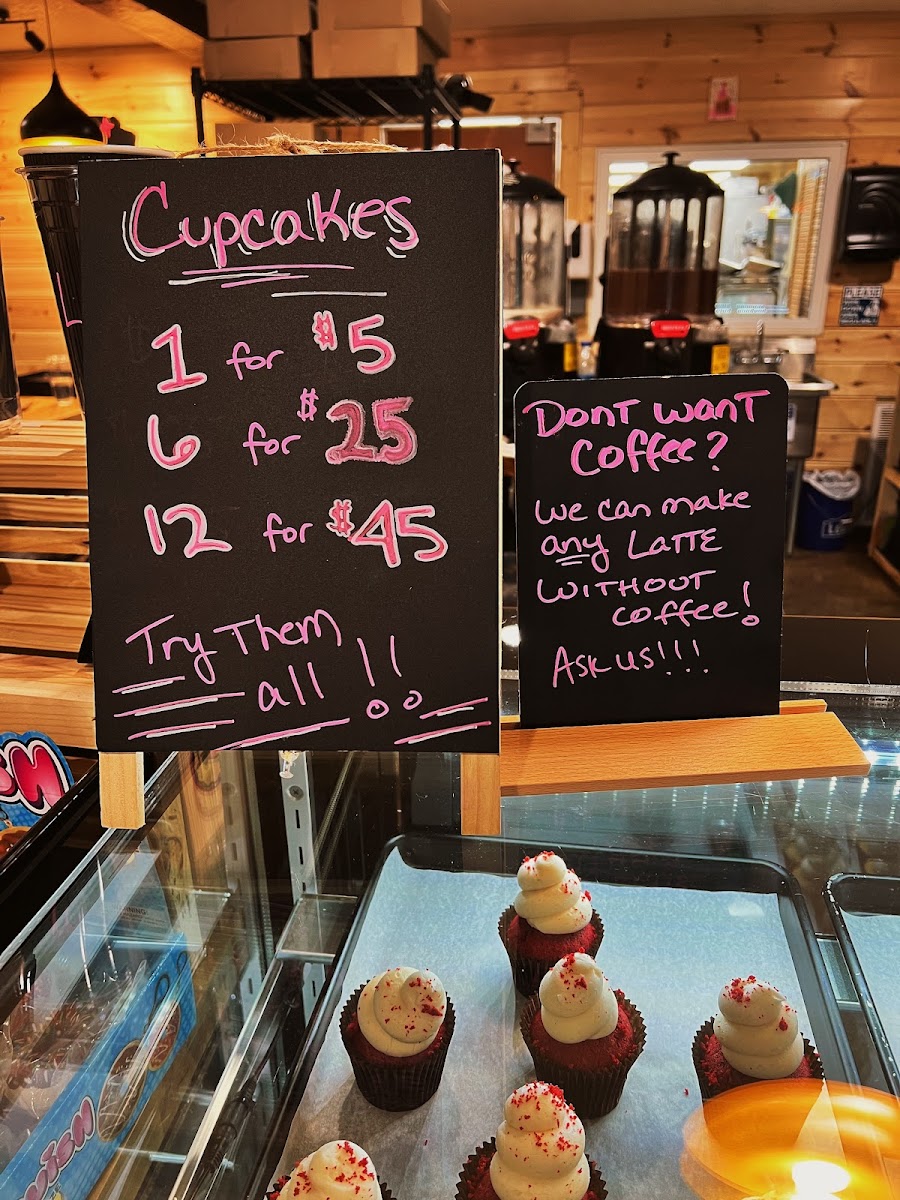 Cupcakes
1 for $5
6 for $25
12 for $45
Try Them
all !!
DONT WANT
Coffee?
We can make
any LATTE
WITHOUT
coffee!
Ask us!!!
PLEASE
WARNING